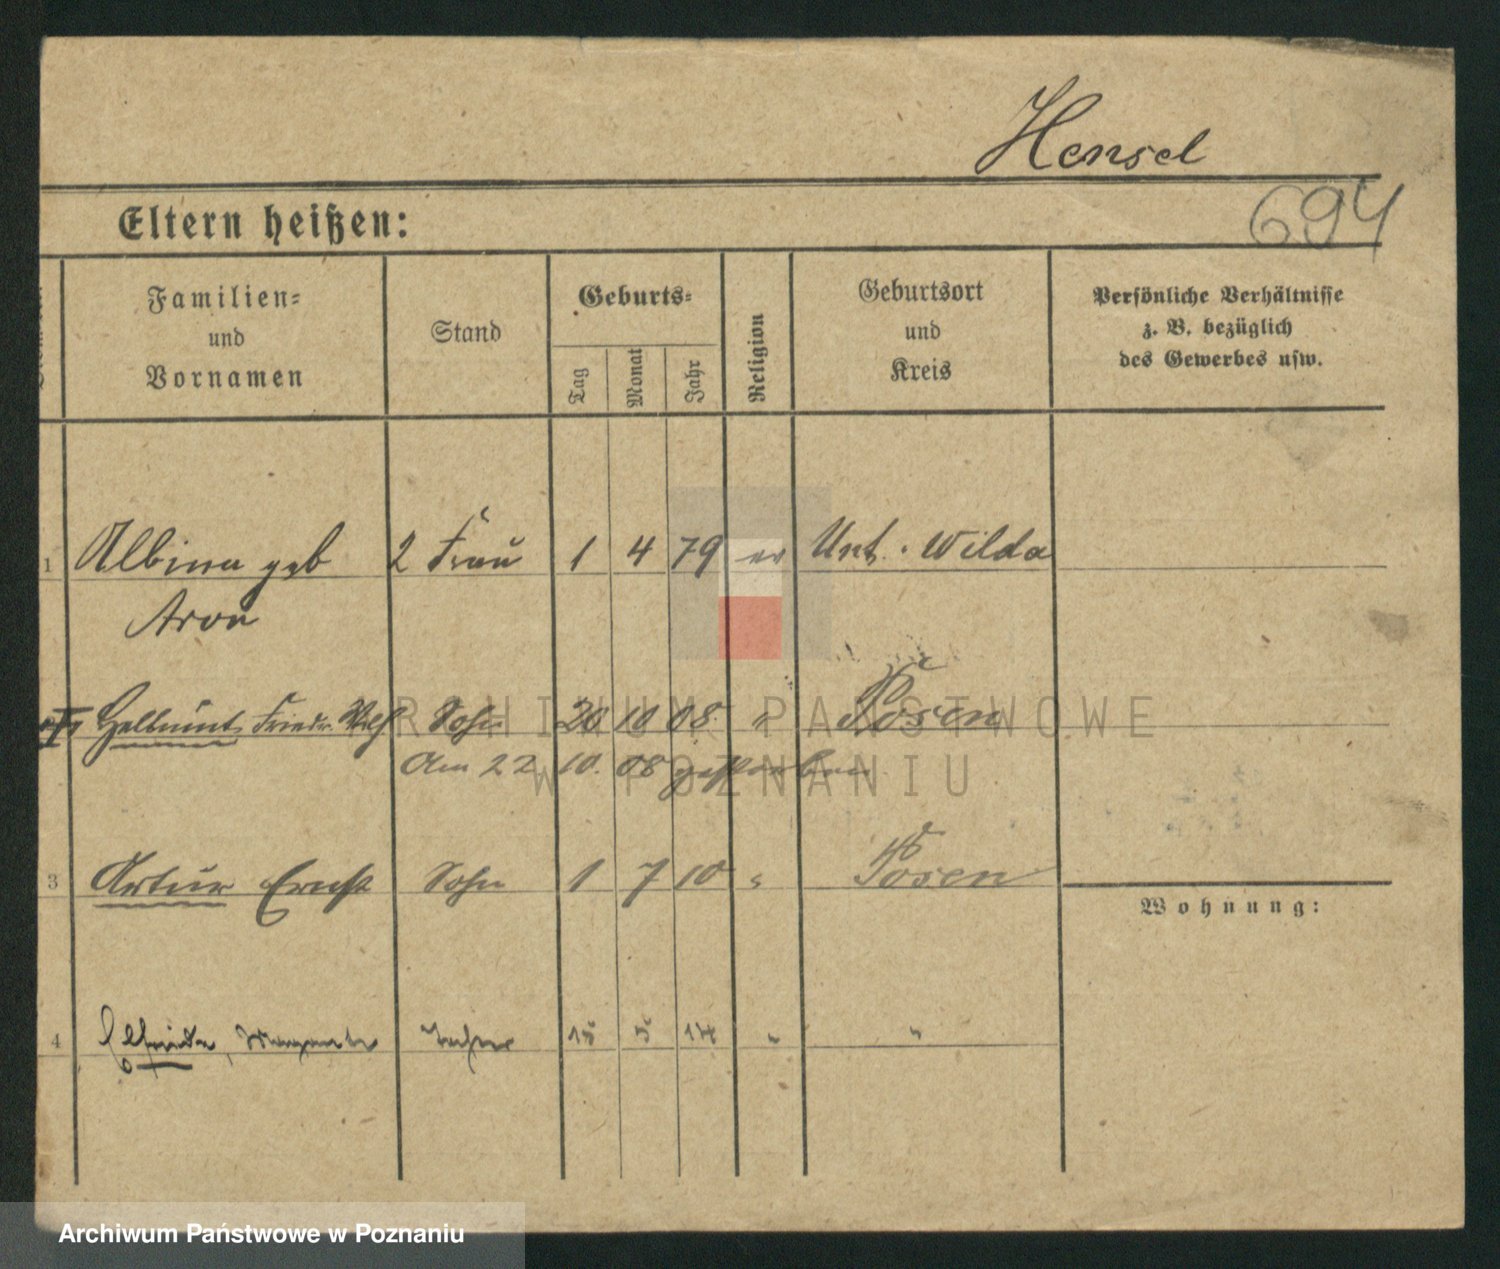 Hensel
694
Eltern heißen:
Familien-
und
Vornamen
Stand
Geburts-
Tag
Monat
Jahr
Religion
Geburtsort
und
Kreis
Persönliche Verhältnisse
z. B. bezüglich
des Gewerbes usw.
1 Albina geb 2 Frau 1 4 79 ev Unt. Wilda
Aron
Hellmut Friedr. Sohn 20 10 08 " Posen
Am 22 10. 08 gestorben
3 Artur Ernst Sohn 1 7 10 " Posen
Wohnung:
4 Elfriede, Margarete Tochter 15 5 14 " "
ARCHIWUM PAŃSTWOWE
W POZNANIU
Archiwum Państwowe w Poznaniu